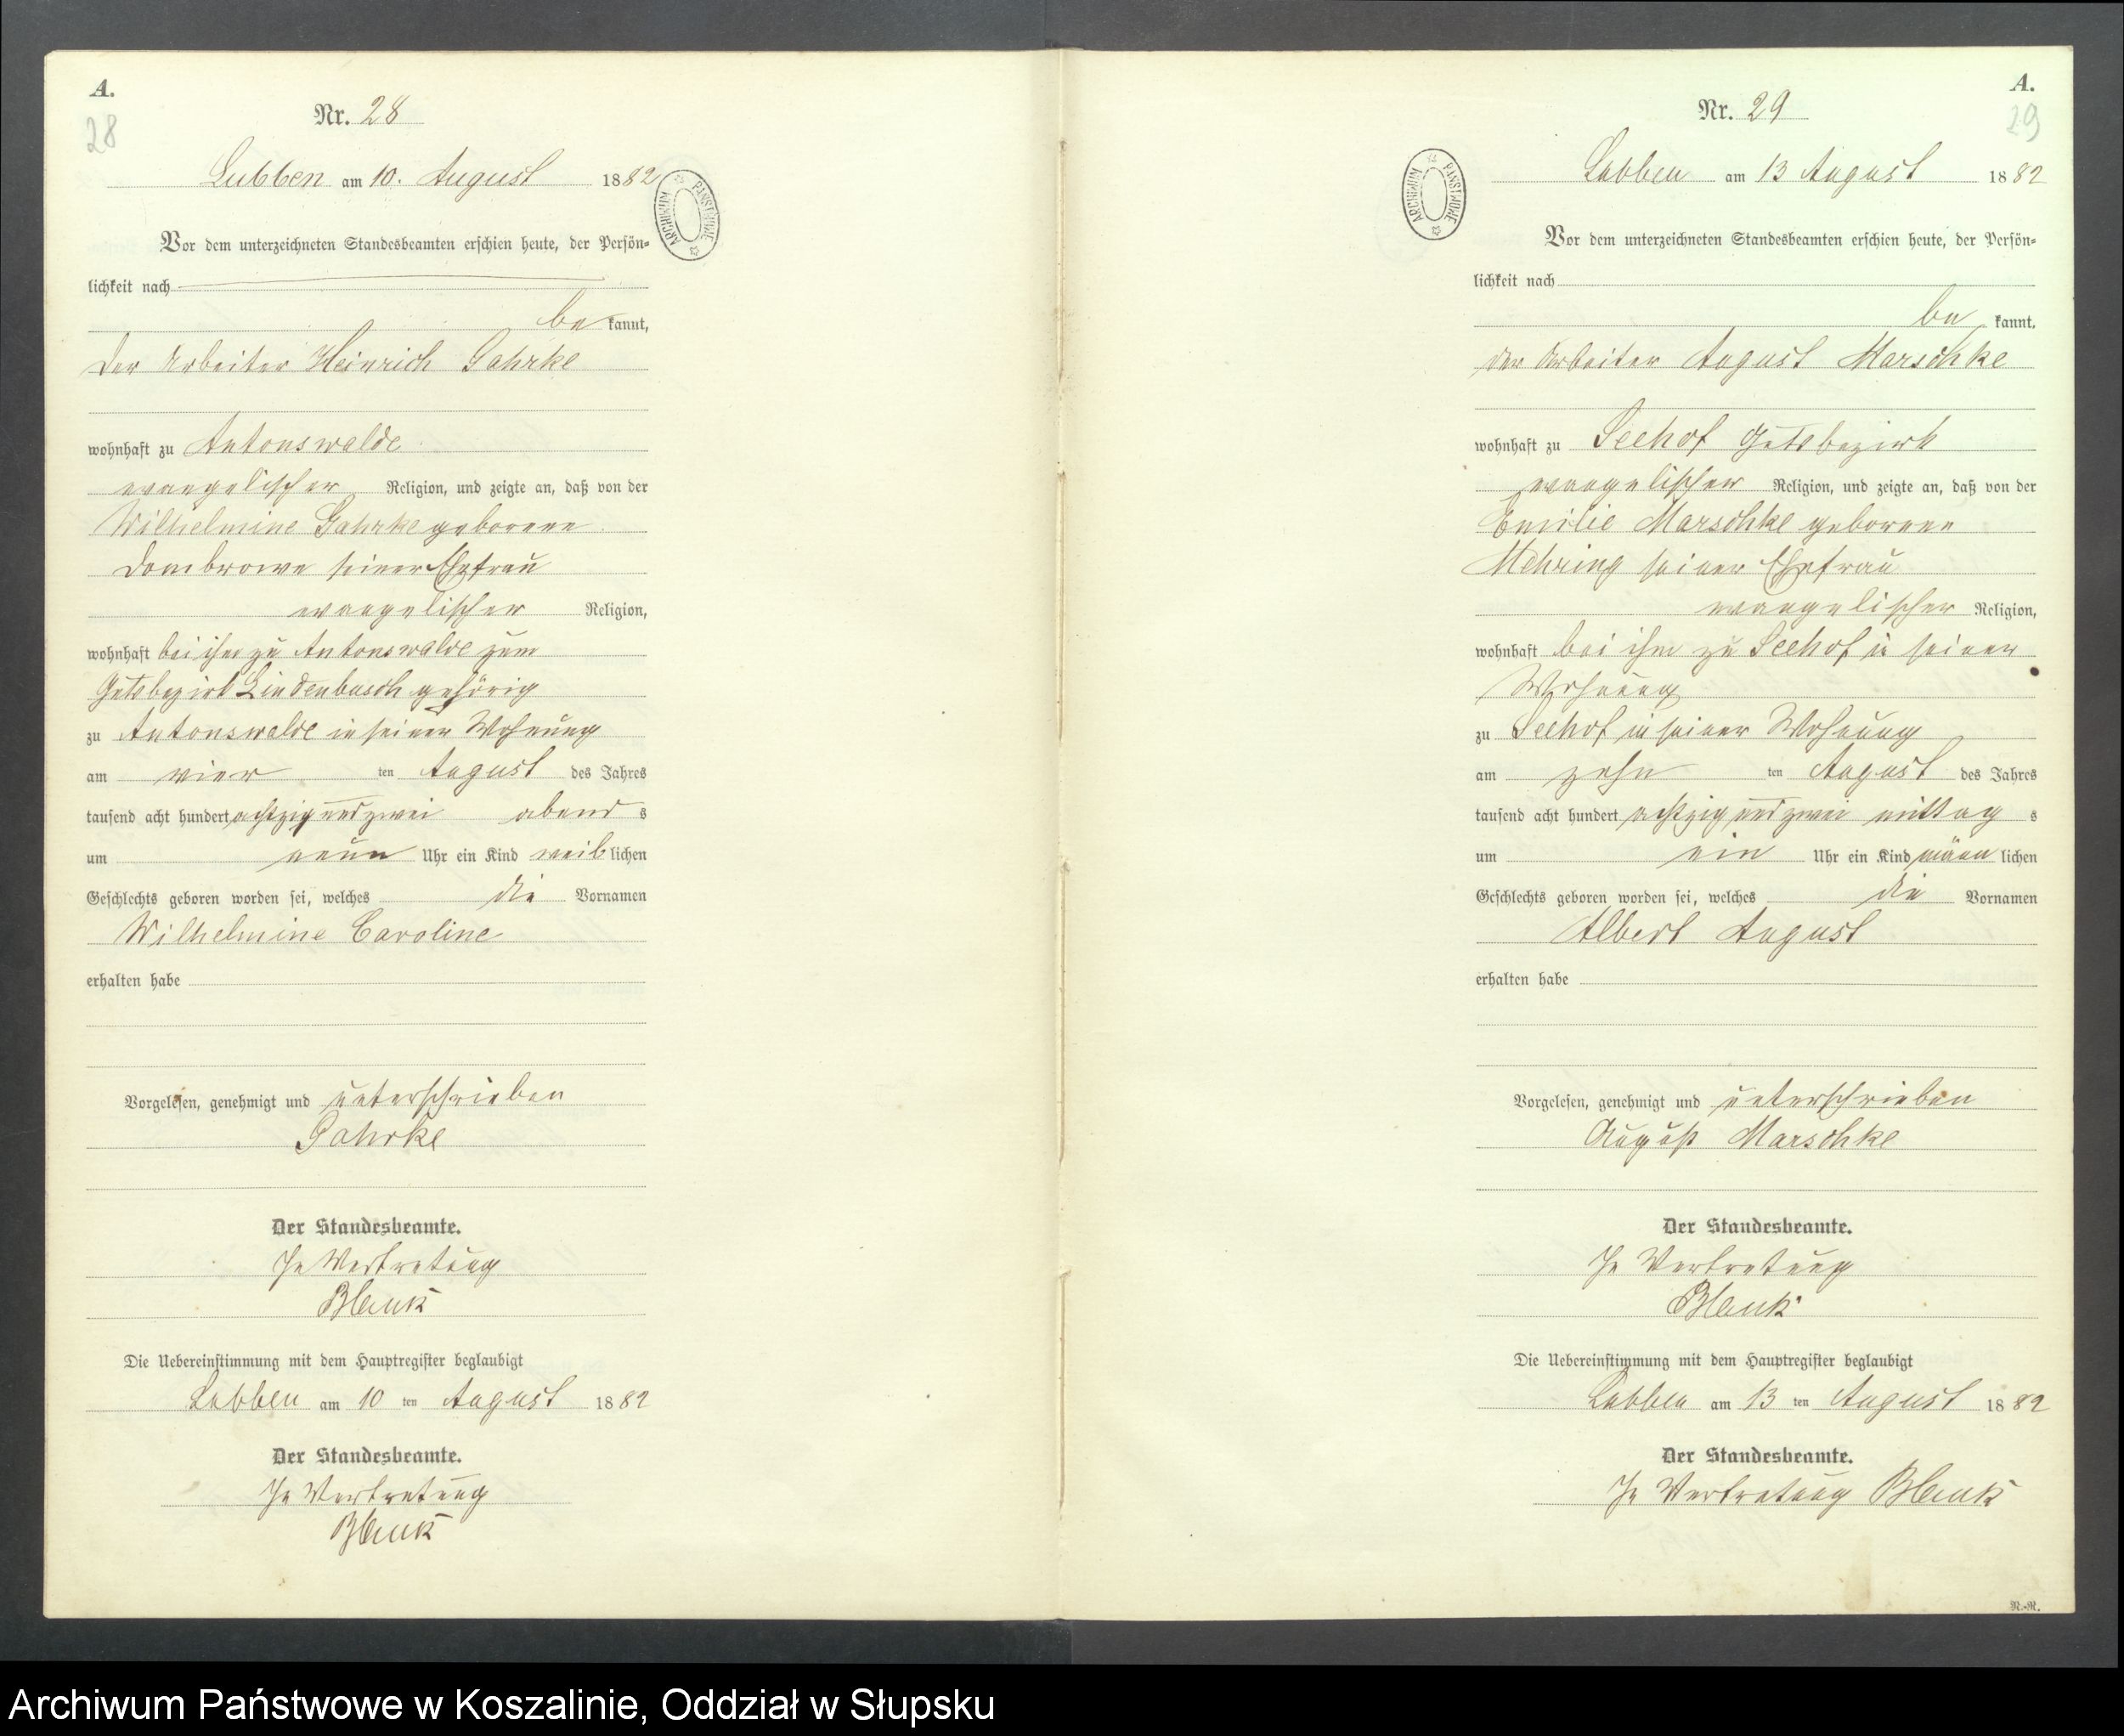 A.
28
Nr. 28
Lubben am 10. August 1882
ARCHIWUM PAŃSTWOWE
Vor dem unterzeichneten Standesbeamten erschien heute, der Persön-
lichkeit nach
be kannt,
der Arbeiter Heinrich Gahrke
wohnhaft zu Antonswalde
evangelischer Religion, und zeigte an, daß von der
Wilhelmine Gahrke geborene
Dombrowe seiner Ehefrau
evangelischer Religion,
wohnhaft bei ihm zu Antonswalde zum
Gutsbezirk Lindenbusch gehörig
zu Antonswalde in seiner Wohnung
am vier ten August des Jahres
tausend acht hundert achtzig und zwei abend s
um neun Uhr ein Kind weib lichen
Geschlechts geboren worden sei, welches die Vornamen
Wilhelmine Caroline
erhalten habe
Vorgelesen, genehmigt und unterschrieben
Gahrke
Der Standesbeamte.
In Vertretung
Blank
Die Uebereinstimmung mit dem Hauptregister beglaubigt
Lubben am 10 ten August 1882
Der Standesbeamte.
In Vertretung
Blank
A.
29
Nr. 29
Lubben am 13 August 1882
ARCHIWUM PAŃSTWOWE
Vor dem unterzeichneten Standesbeamten erschien heute, der Persön-
lichkeit nach
be kannt,
der Arbeiter August Marschke
wohnhaft zu Seehof Gutsbezirk
evangelischer Religion, und zeigte an, daß von der
Emilie Marschke geborene
Mehring seiner Ehefrau
evangelischer Religion,
wohnhaft bei ihm zu Seehof in seiner
Wohnung
zu Seehof in seiner Wohnung
am zehn ten August des Jahres
tausend acht hundert achtzig und zwei mittag s
um ein Uhr ein Kind männ lichen
Geschlechts geboren worden sei, welches die Vornamen
Albert August
erhalten habe
Vorgelesen, genehmigt und unterschrieben
August Marschke
Der Standesbeamte.
In Vertretung
Blank
Die Uebereinstimmung mit dem Hauptregister beglaubigt
Lubben am 13 ten August 1882
Der Standesbeamte.
In Vertretung Blank
R.-R.
Archiwum Państwowe w Koszalinie, Oddział w Słupsku